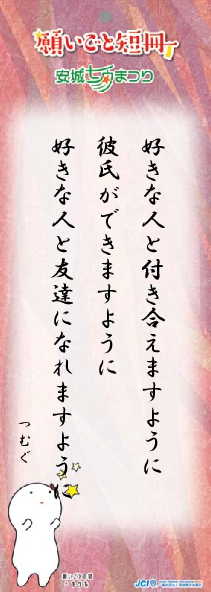 願いごと短冊
安城七夕まつり
好きな人と付き合えますように
彼氏ができますように
好きな人と友達になれますように
つむぐ
願いごと短冊
JCI